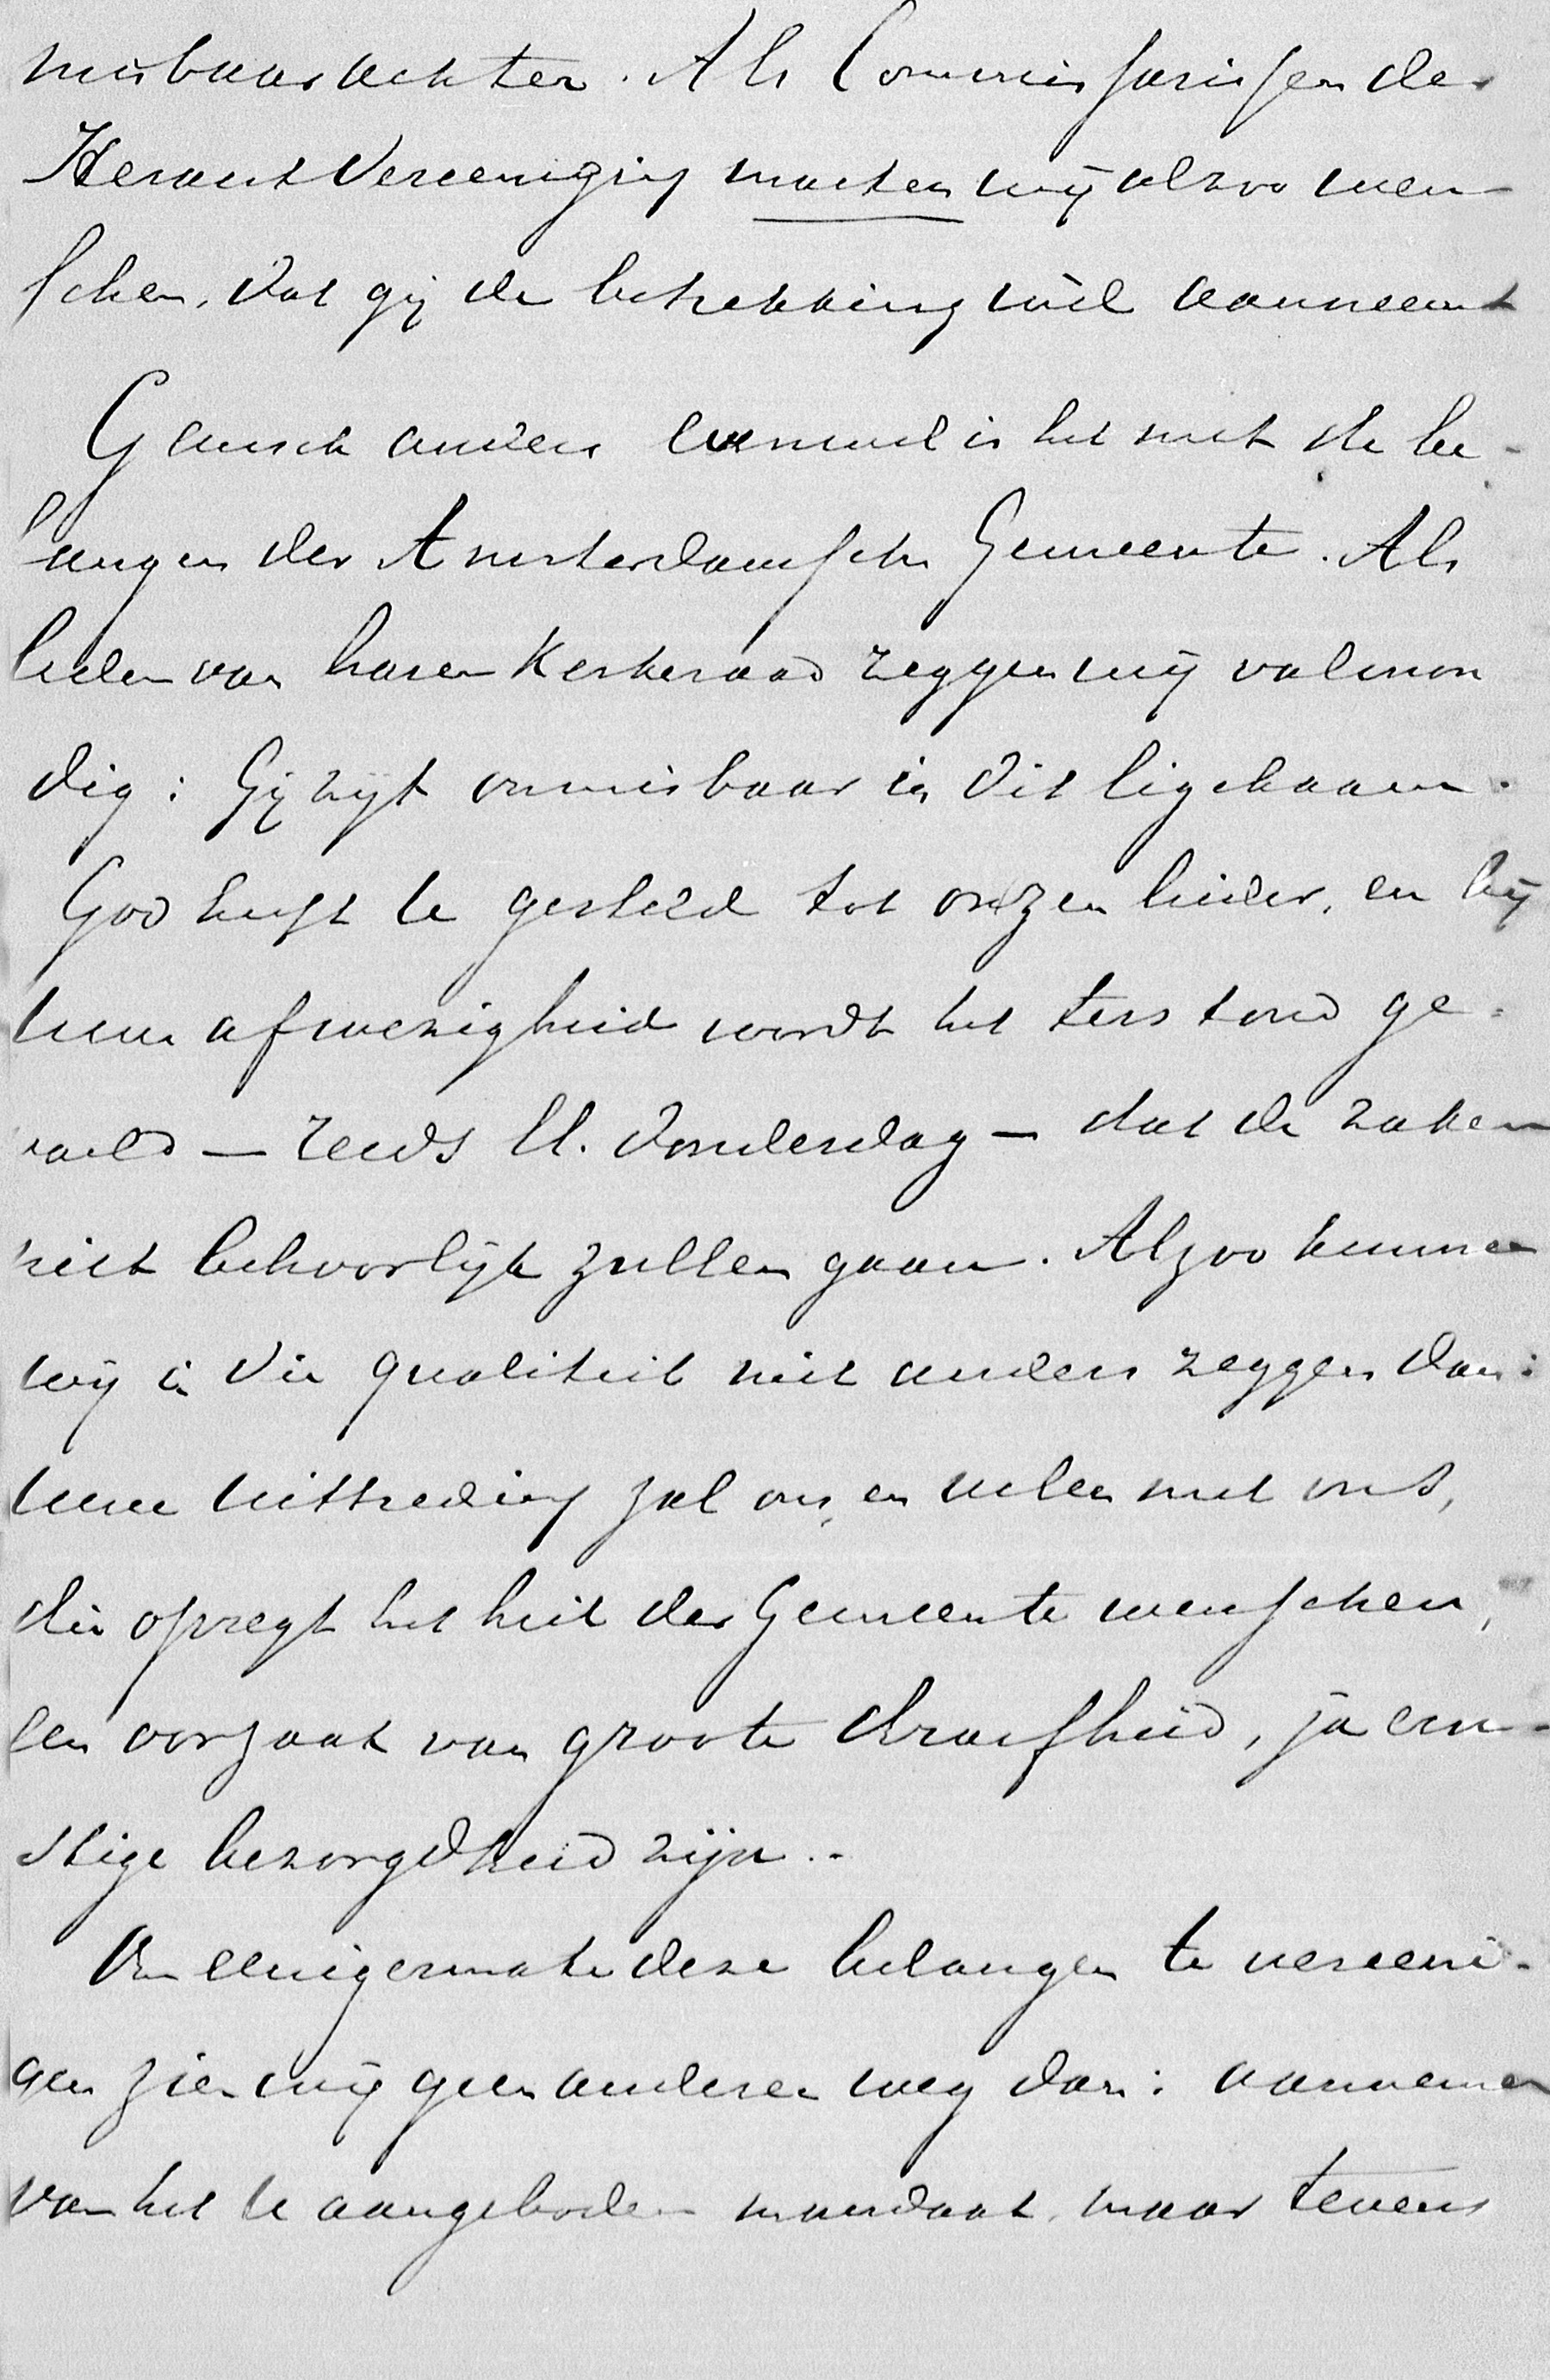 misbaar achten. Als Commissarissen der
Heraut Vereeniging moeten wij alzoo wen-
schen, dat gij de betrekking wèl aanneemt
Gansch anders evenwel is het met de be-
langen der Amsterdamsche Gemeente. Als
leden van haren Kerkeraad zeggen wij volmon
dig: Gij zijt onmisbaar in dit ligchaam.
God heeft U gesteld tot onzen leider, en bij
Uwe afwezigheid wordt het terstond ge-
voeld — reeds ll. Donderdag — dat de zaken
niet behoorlijk zullen gaan. Alzoo kunnen
wij in die qualiteit niet anders zeggen dan:
Uwe uittreding zal ons, en velen met ons,
die opregt het heil der Gemeente wenschen,
een oorzaak van groote droefheid, ja ern-
stige bezorgdheid zijn.-
Om eenigermate deze belangen te vereeni-
gen zien wij geen anderen weg dan: aannemen
van het U aangeboden mandaat, maar tevens